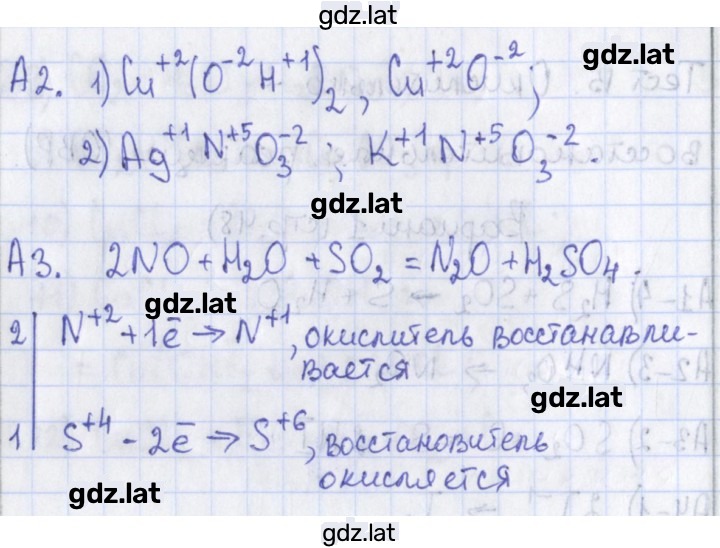 gdz.lat
А2. 1) Cu⁺²(O⁻²H⁺¹)₂, Cu⁺²O⁻²;
gdz.lat
2) Ag⁺¹N⁺⁵O₃⁻² ; K⁺¹N⁺⁵O₃⁻².
gdz.lat
А3. 2NO + H₂O + SO₂ = N₂O + H₂SO₄.
gdz.lat
2| N⁺² + 1ē → N⁺¹, окислитель восстанавли-
вается
gdz.lat
1| S⁺⁴ - 2ē → S⁺⁶, восстановитель
окисляется
gdz.lat
gdz.lat